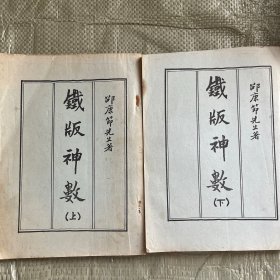 邵康節先生著
鐵版神數
(上)
邵康節先生著
鐵版神數
(下)